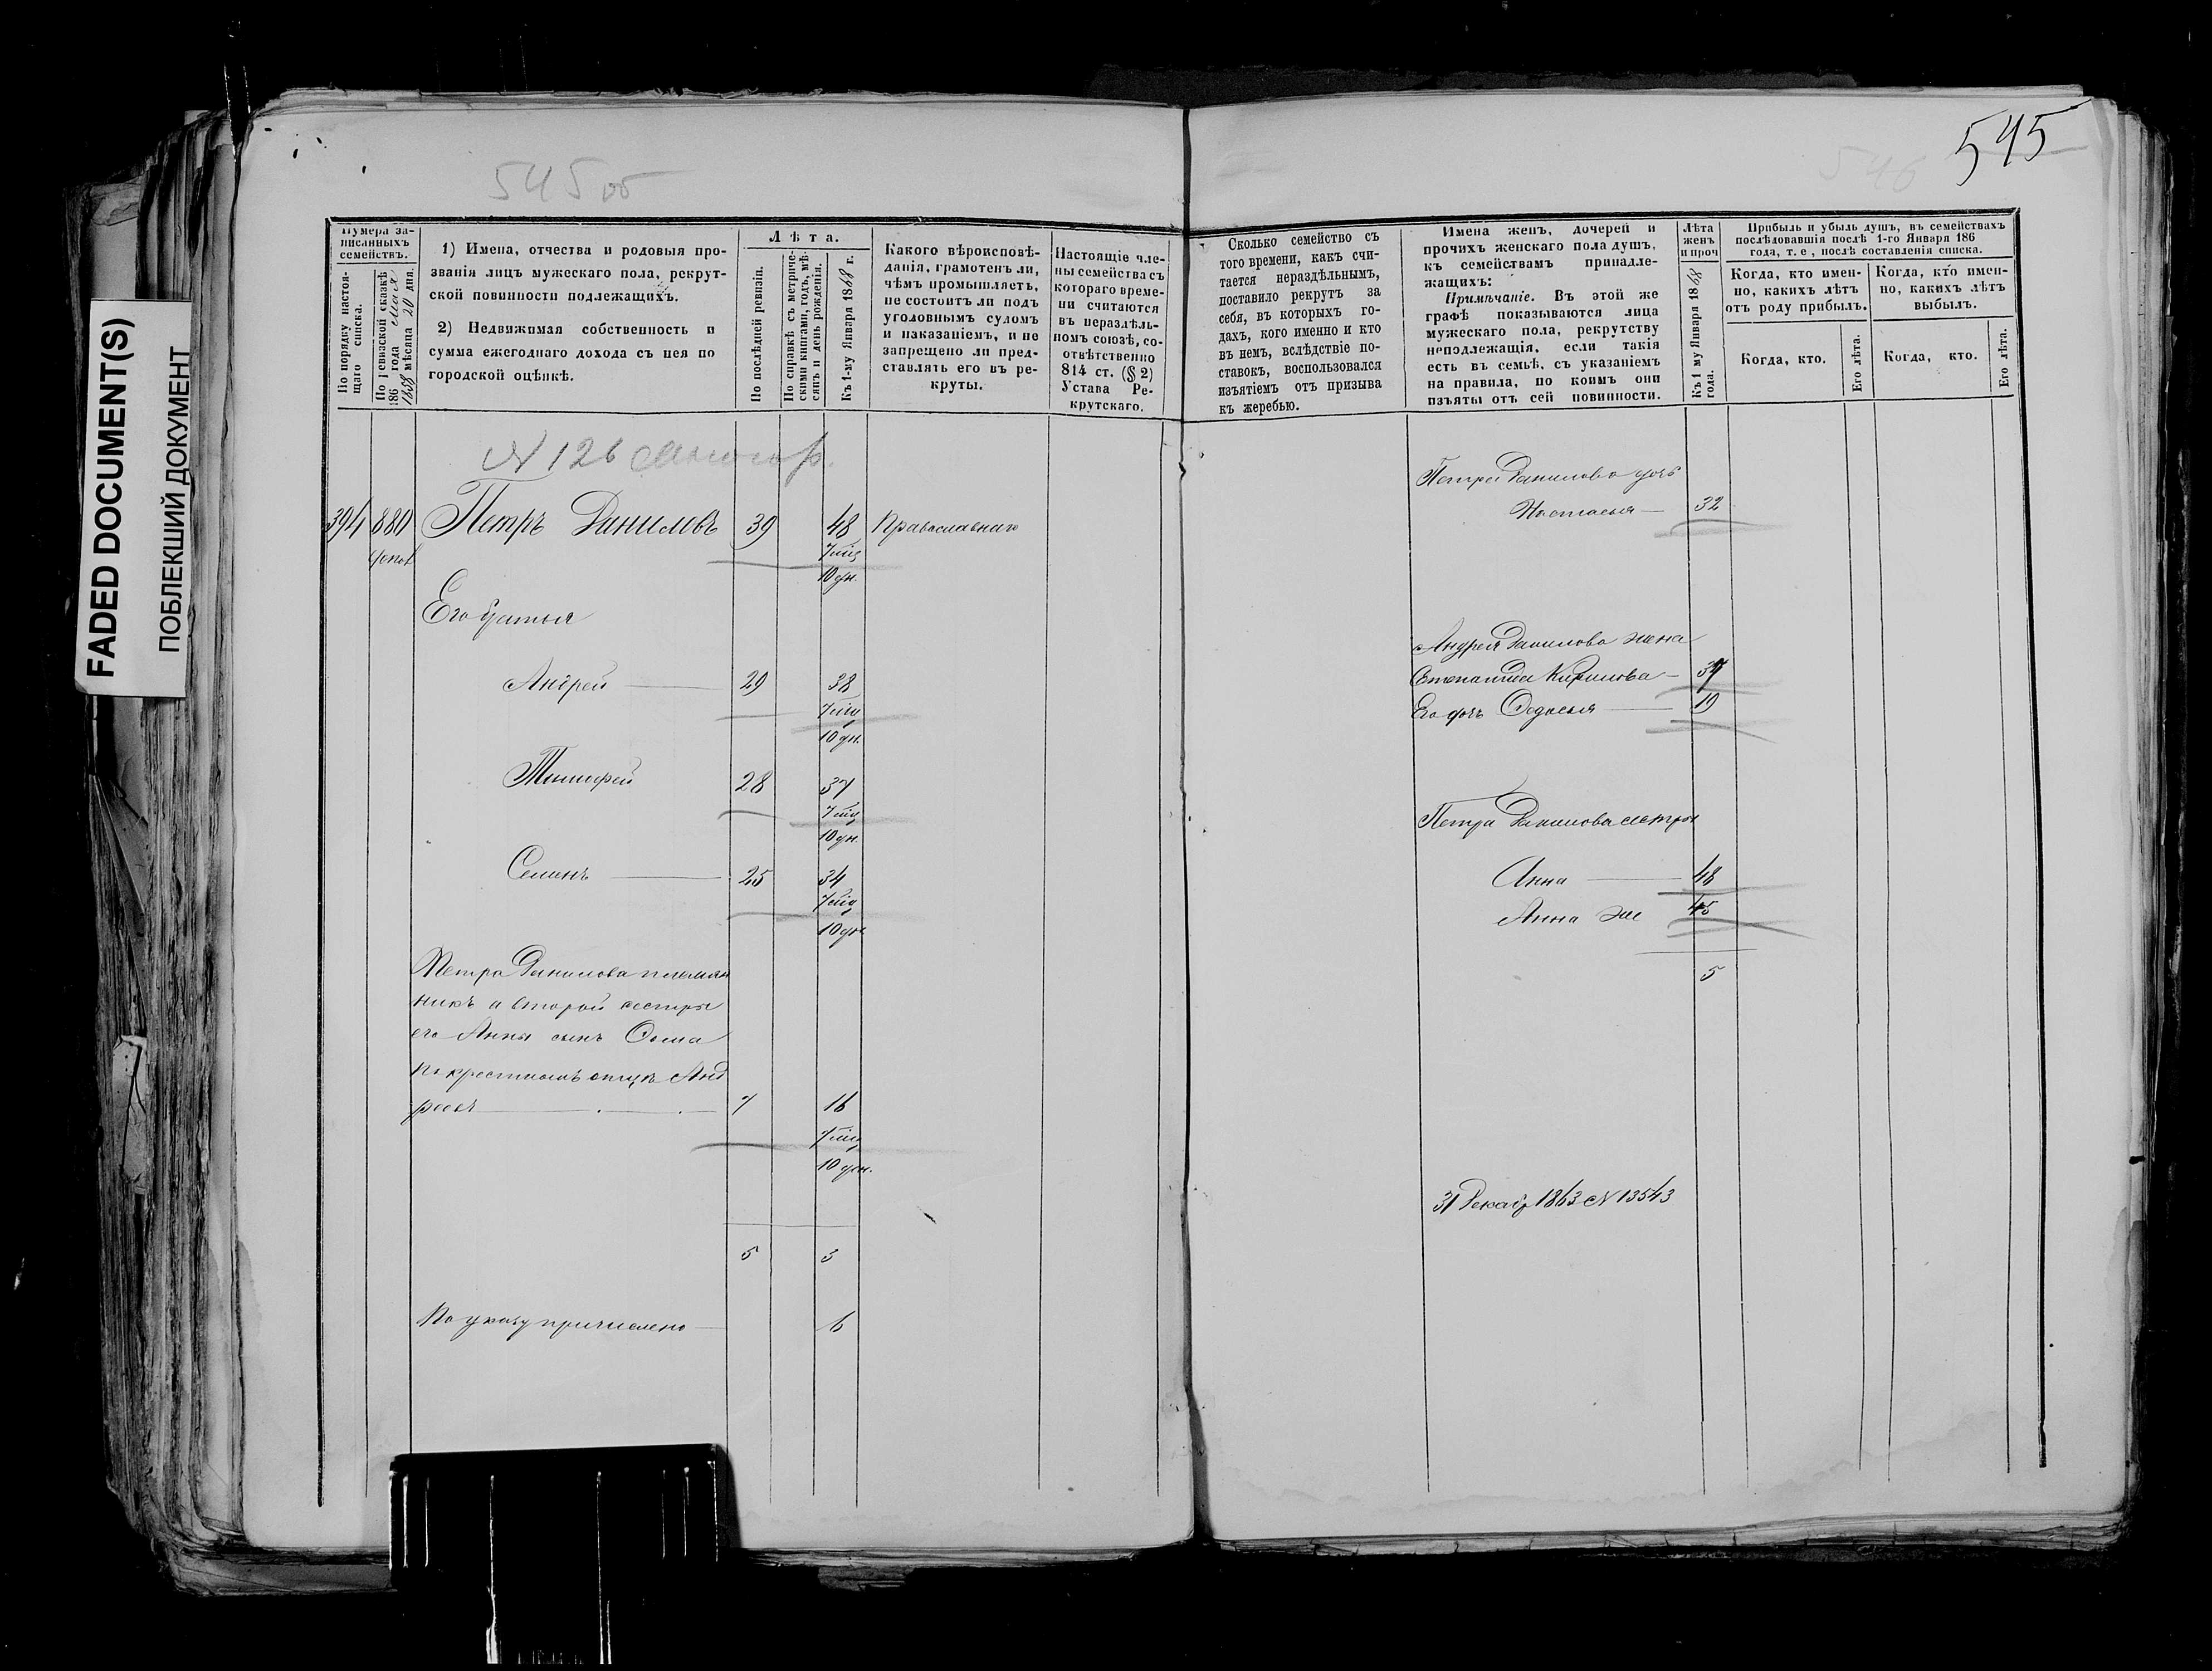 FADED DOCUMENT(S)
ПОБЛЕКШИЙ ДОКУМЕНТ
545 об
Нумера за-
писанныхъ
семействъ.
По порядку настоя-
щаго списка.
По ревизской сказкѣ
186 года Мая
1858 мѣсяца 20 дня.
1) Имена, отчества и родовыя про-
званія лицъ мужескаго пола, рекрут-
ской повинности подлежащихъ.
2) Недвижимая собственность и
сумма ежегоднаго дохода съ нея по
городской оцѣнкѣ.
Лѣта.
По послѣдней ревизіи.
По справкѣ съ метриче-
скими книгами, годъ, мѣ-
сяцъ и день рожденія.
Къ 1-му Января 1868 г.
Какого вѣроисповѣ-
данія, грамотенъ ли,
чѣмъ промышляетъ,
не состоитъ ли подъ
уголовнымъ судомъ
и наказаніемъ, и не
запрещено ли пред-
ставлять его въ ре-
круты.
Настоящіе чле-
ны семейства съ
котораго време-
ни считаются
въ нераздѣль-
номъ союзѣ, со-
отвѣтственно
814 ст. (§ 2)
Устава Ре-
крутскаго.
N 126
394 880 Петръ Даниловъ 39 48 Православнаго
7 мц
10 дн.
Его братья
Андрей 29 38
7 мц
10 дн.
Тимофей 28 37
7 мц
10 дн.
Семенъ 25 34
7 мц
10 дн
Петра Данилова племян
никъ а второй сестры
его Анны сынъ Фома
по крестному отцу Анд
реевъ 7 16
7 мц
10 дн.
5 5
По указу причислено 6
545
546
Сколько семейство съ
того времени, какъ счи-
тается нераздѣльнымъ,
поставило рекрутъ за
себя, въ которыхъ го-
дахъ, кого именно и кто
въ немъ, вслѣдствіе по-
ставокъ, воспользовался
изъятіемъ отъ призыва
къ жеребью.
Имена женъ, дочерей и
прочихъ женскаго пола душъ,
къ семействамъ принадле-
жащихъ:
Примѣчаніе. Въ этой же
графѣ показываются лица
мужескаго пола, рекрутству
неподлежащія, если такія
есть въ семьѣ, съ указаніемъ
на правила, по коимъ они
изъяты отъ сей повинности.
Лѣта
женъ
и проч
Къ 1 му Января 1868
года.
Прибыль и убыль душъ, въ семействахъ
послѣдовавшія послѣ 1-го Января 186
года, т. е, послѣ составленія списка.
Когда, кто имен-
но, какихъ лѣтъ
отъ роду прибылъ.
Когда, кто имен-
но, какихъ лѣтъ
выбылъ.
Когда, кто.
Его лѣта.
Когда, кто.
Его лѣта.
Петра Данилова дочь
Настасья 32
Андрея Данилова жена
Степанида Кирилова 37
Его дочь Федосья 19
Петра Данилова сестры
Анна 48
Анна же 45
5
31 Декабр 1863 N 13543